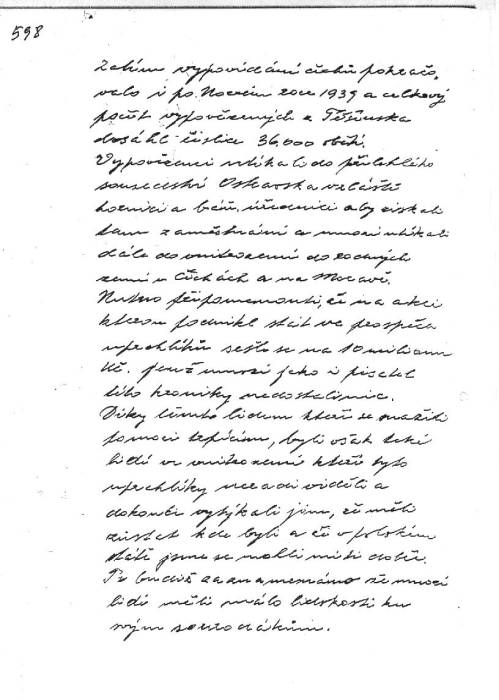 598
Zatím vypovídání čechů pokračo,
valo i po Novém roce 1939 a celkový
počet vypovězených z Těšínska
dosáhl číslice 36.000 obětí.
Vypovězenci utíkali do přilehlého
sousedství Ostravska zvláště
horníci a báň. úředníci aby získali
tam zaměstnání a mnozí utíkali
dále do vnitrozemí do rodných
zemí v Čechách a na Moravě.
Nutno připomenouti, že na akci
kterou podnikl stát ve prospěch
uprchlíků sešlo se na 10 milionů
Kč. jenž mnozí jako i pisatel
této kroniky nedostali nic.
Díky těmto lidem kteří se snažili
pomoci trpícím, byli však také
lidé ve vnitrozemí kteří tyto
uprchlíky neradi viděli a
dokonce vytýkali jim, že měli
zůstat kde byli a že v polském
státě jsme se mohli míti dobře.
To budiž zaznamenáno že mnozí
lidé měli málo lidskosti ku
svým sourodákům.